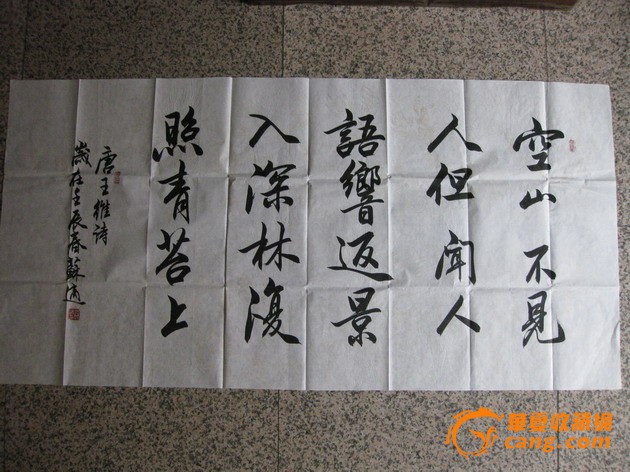 空山不見
人但闻人
語響返景
入深林復
照青苔上
唐王維诗
歲在壬辰春蘇適
華夏收藏網
cang.com